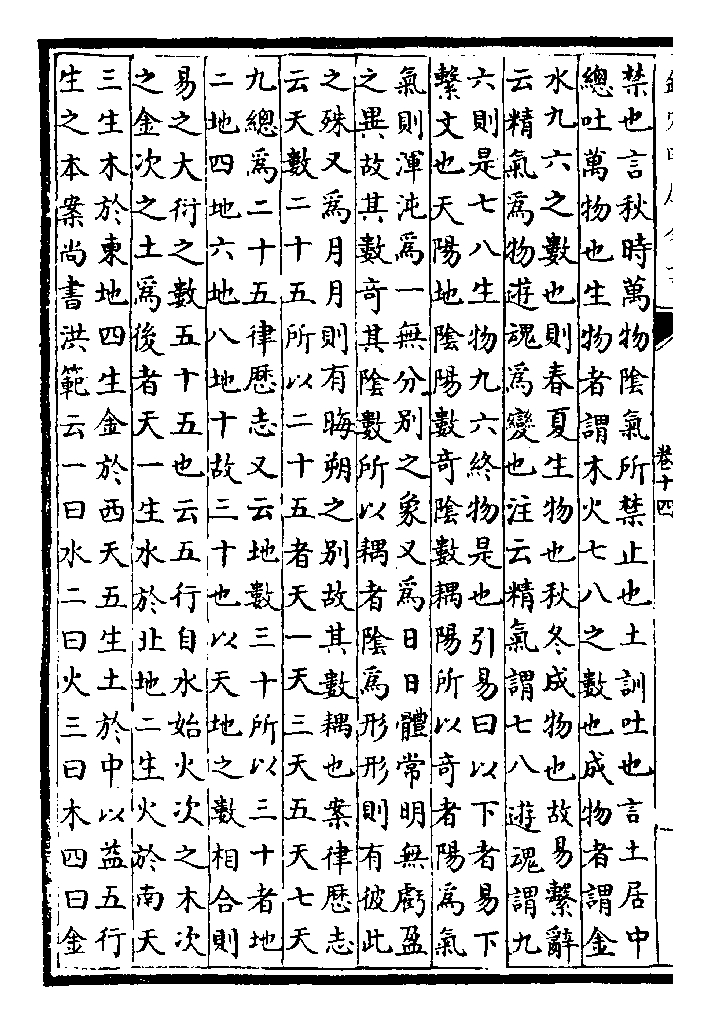 卷十四
禁也言秋時萬物陰氣所禁止也土訓吐也言土居中
總吐萬物也生物者謂木火七八之數也成物者謂金
水九六之數也則春夏生物也秋冬成物也故易繫辭
云精氣爲物遊魂爲變也注云精氣謂七八遊魂謂九
六則是七八生物九六終物是也引易曰以下者易下
繫文也天陽地陰陽數竒陰數耦陽所以竒者陽爲氣
氣則渾沌爲一無分别之象又爲日日體常明無虧盈
之異故其數竒其陰數所以耦者陰爲形形則有彼此
之殊又爲月月則有晦朔之别故其數耦也案律厯志
云天數二十五所以二十五者天一天三天五天七天
九總爲二十五律厯志又云地數三十所以三十者地
二地四地六地八地十故三十也以天地之數相合則
易之大衍之數五十五也云五行自水始火次之木次
之金次之土爲後者天一生水於北地二生火於南天
三生木於東地四生金於西天五生土於中以益五行
生之本案尚書洪範云一曰水二曰火三曰木四曰金